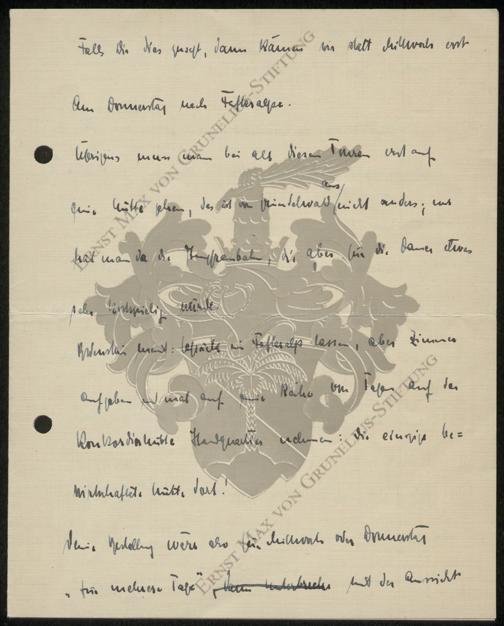 Falls Dir dies passt, dann kämen wir statt Mittwoch erst
am Donnerstag nach Fafleralp.
Übrigens muss man bei all diesen Touren erst auf
eine Hütte gehen, das ist von Grindelwald aus nicht anders; nur
hat man da die Jungfraubahn, die aber für die Dauer etwas
sehr kostspielig würde.
meint: Gepäck in Fafleralp lassen, aber Zimmer
aufgeben und mal auf eine Reihe von Tagen auf der
Konkordiahütte Headquarters nehmen: die einzige be=
wirtschaftete Hütte dort!
Deine Bestellung wäre also für Mittwoch oder Donnerstag
"für mehrere Tage", mit der Aussicht
ERNST MAX VON GRUNELIUS-STIFTUNG
ERNST MAX VON GRUNELIUS-STIFTUNG